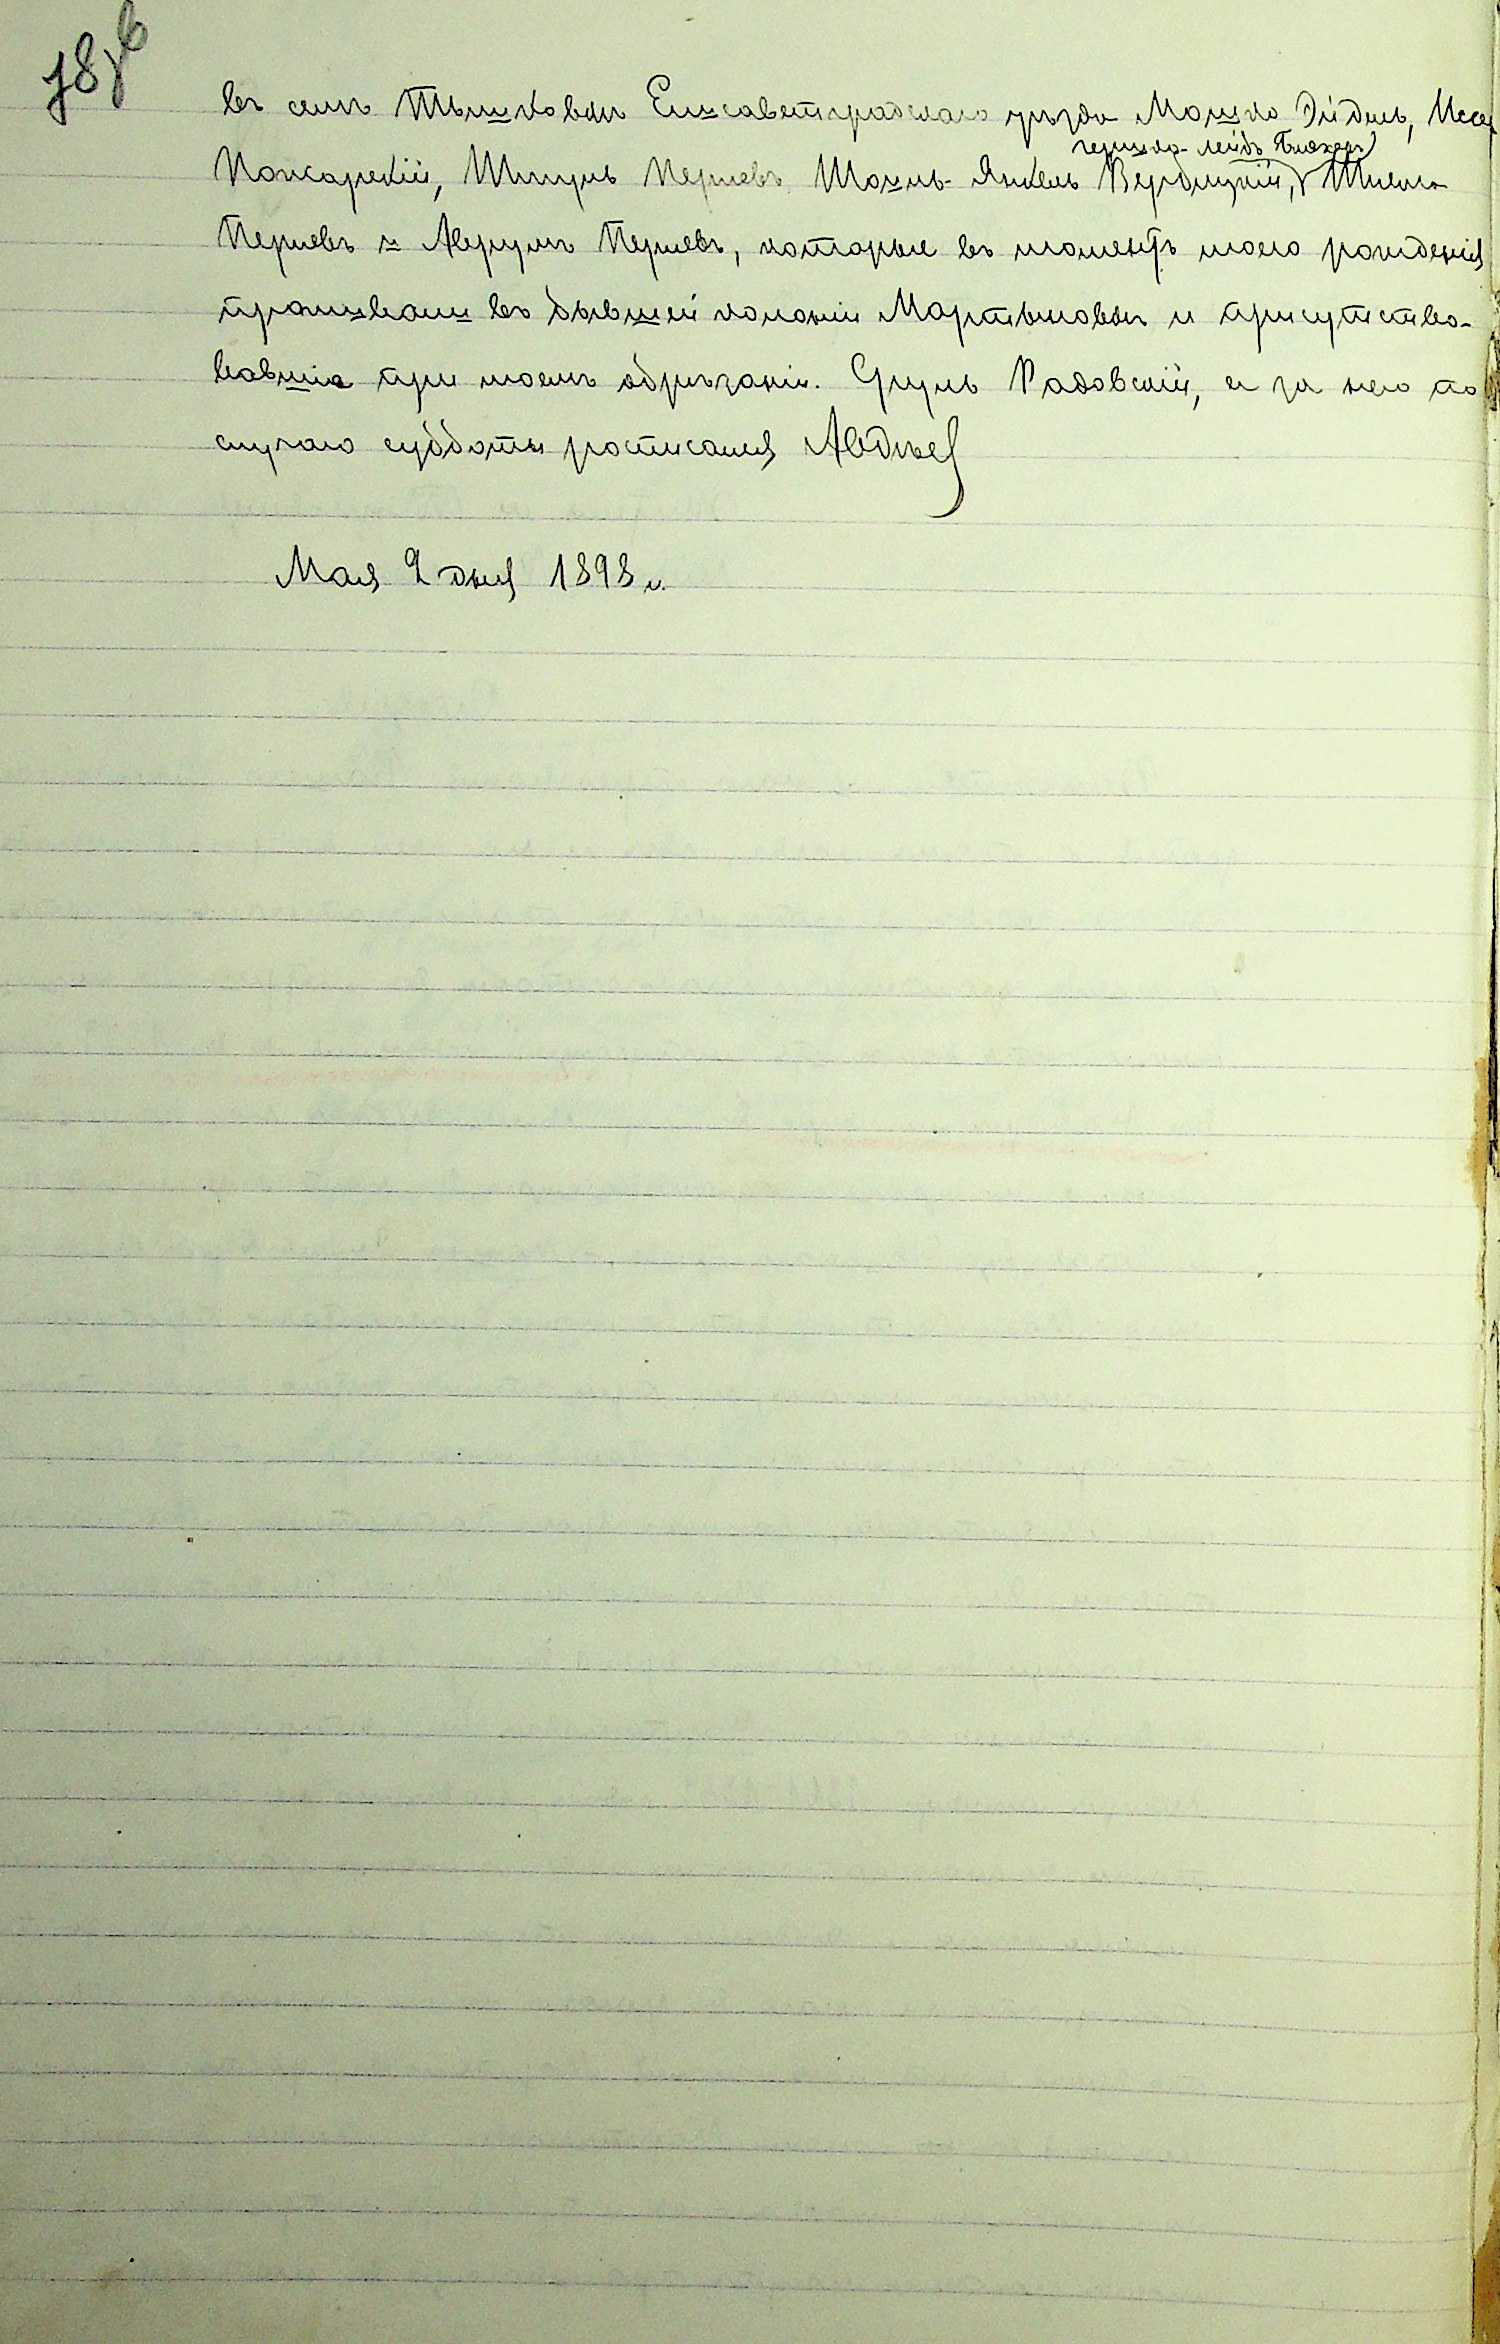 78 об
въ селѣ Тышковкѣ Елисаветградскаго уѣзда Мошко Эйдель,
Пожарскій, Шмуль Перлевъ Шоиль-Янкель Вербицкій,
Гершко-Лейбъ Бляхеръ
Перлевъ и Аврумъ Перлевъ, которые въ моментъ моего рожденія
проживали въ бывшей колоніи Мартыновкѣ и присутство-
вавшіе при моемъ обрѣзаніи. Сруль Радовскій, а за него по
случаю субботы росписался Авдѣев
Мая 2 дня 1898 г.